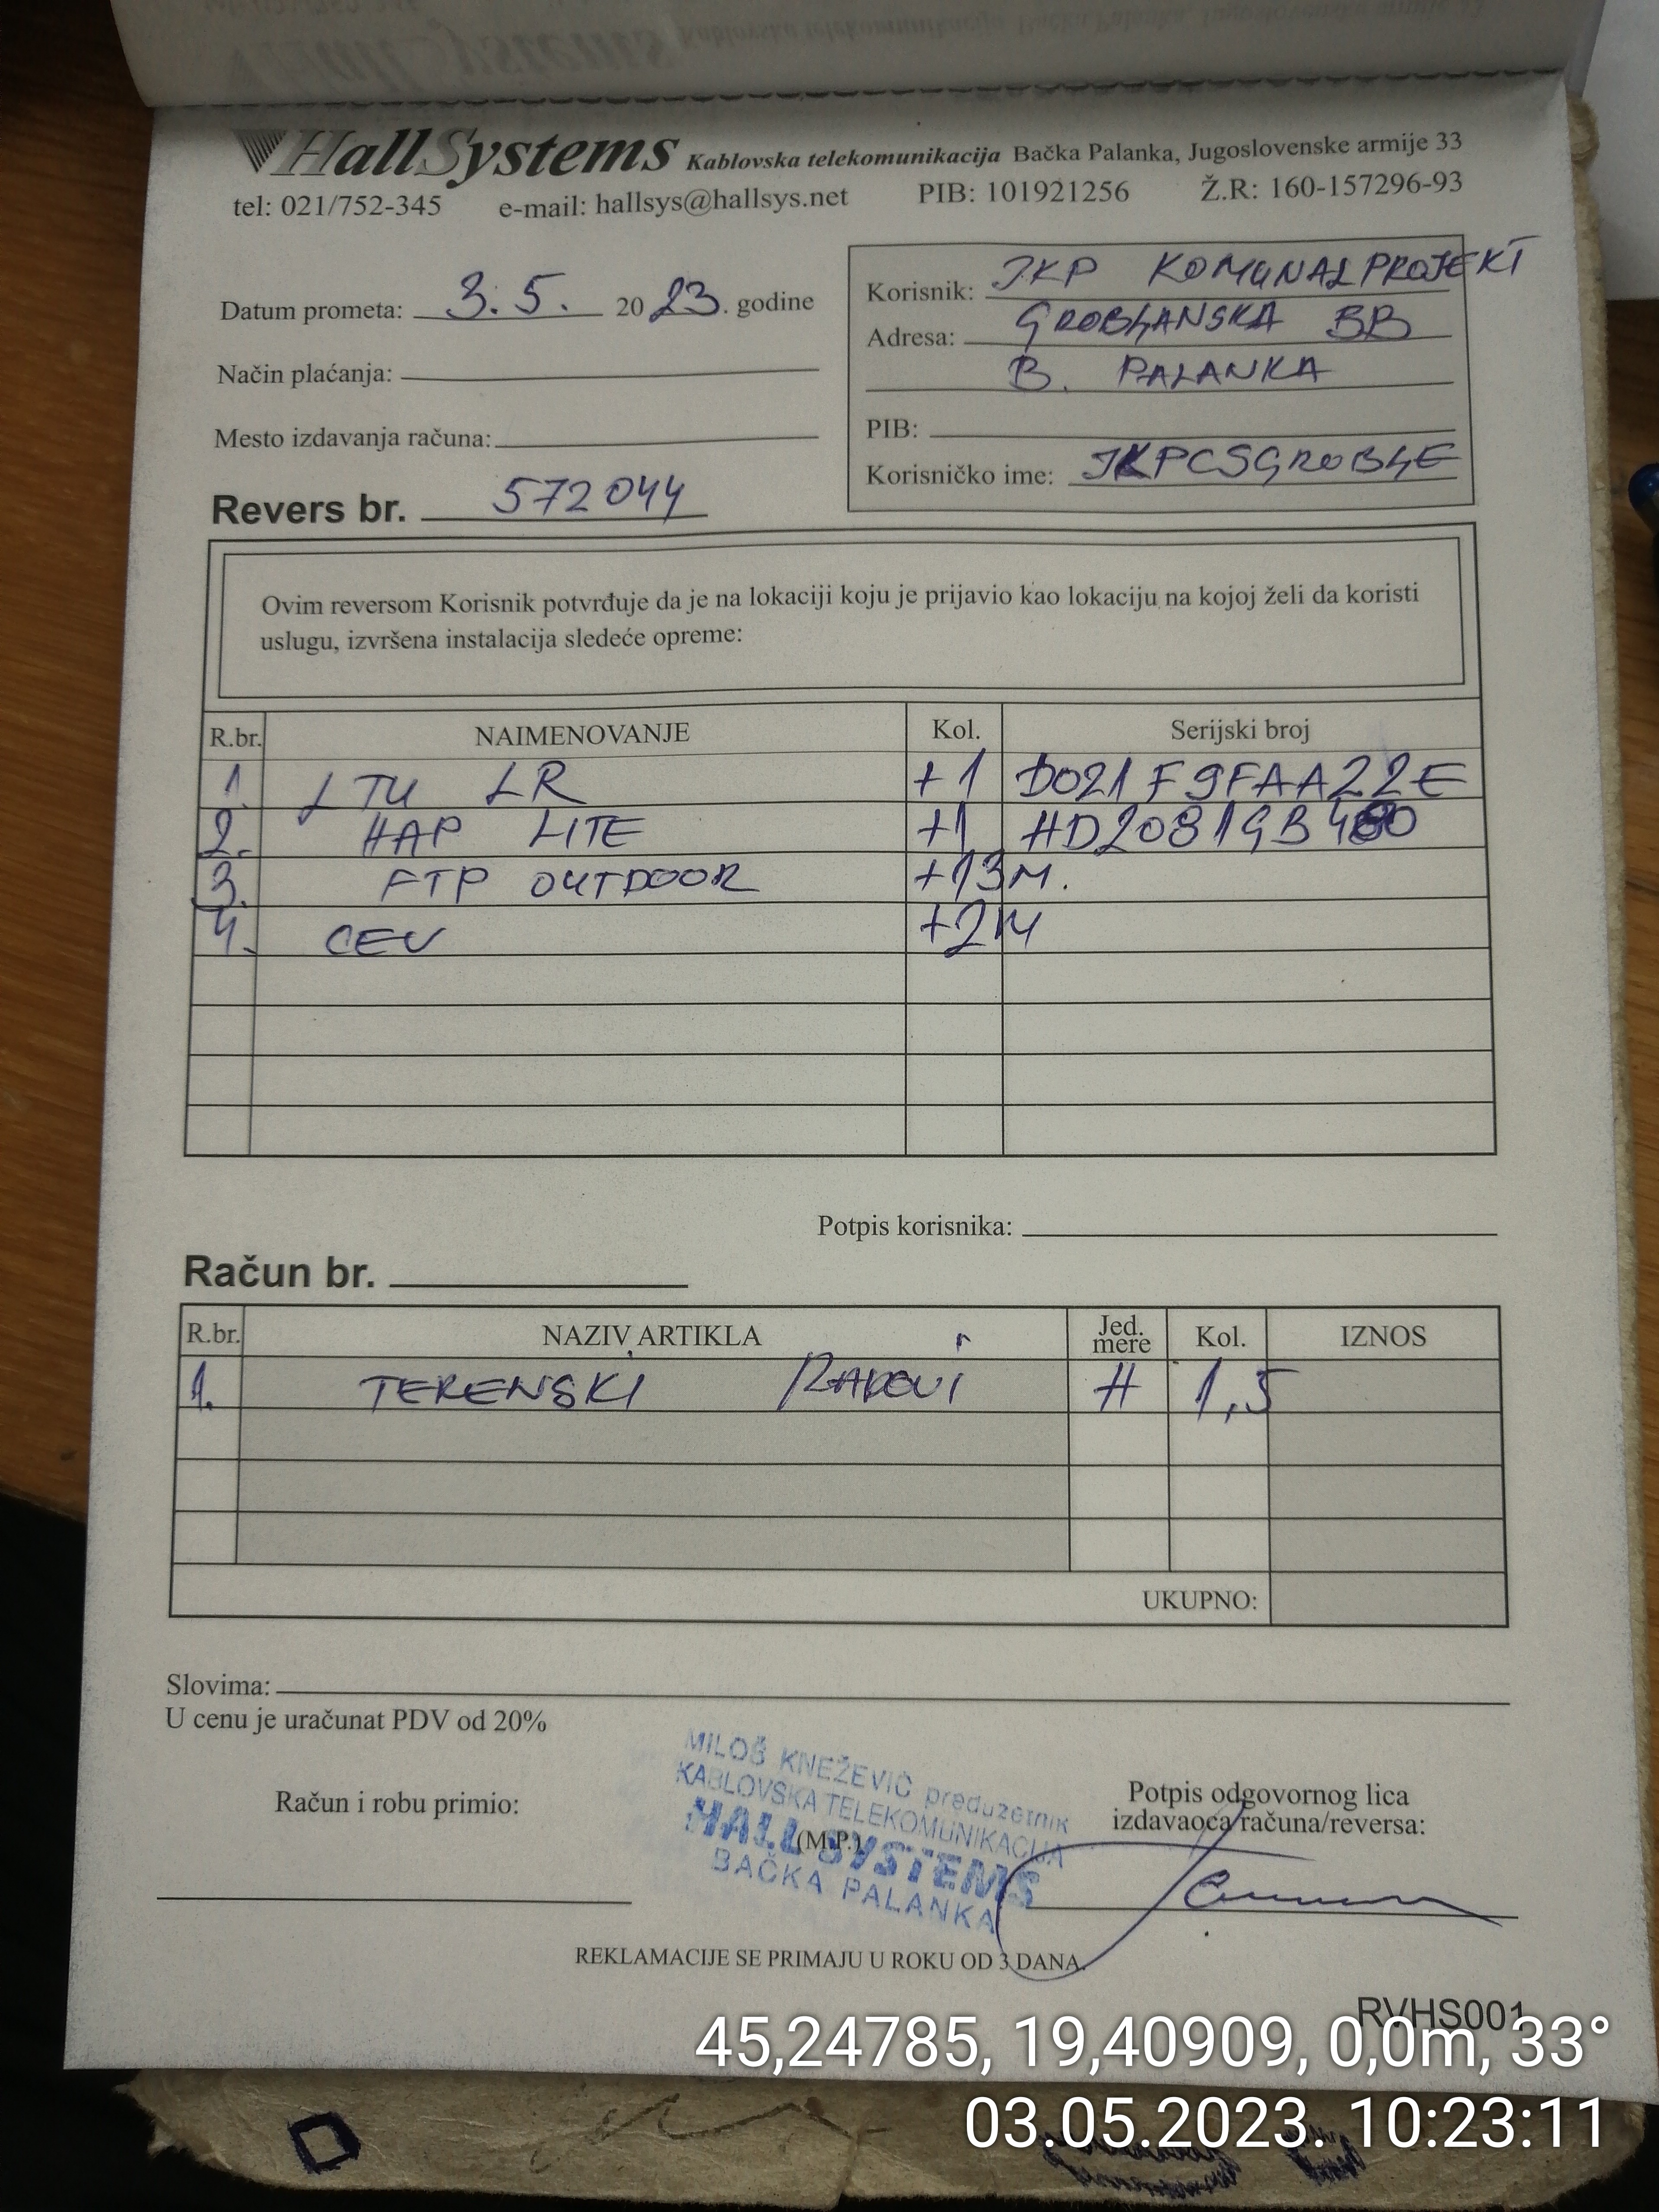 HallSystems Kablovska telekomunikacija Bačka Palanka, Jugoslovenske armije 33
tel: 021/752-345 e-mail: hallsys@hallsys.net PIB: 101921256 Ž.R: 160-157296-93
Datum prometa: 3.5. 2023. godine
Način plaćanja:
Mesto izdavanja računa:
Revers br. 572044
Korisnik: JKP KOMUNALPROJEKT
Adresa: GROBLJANSKA BB
B. PALANKA
PIB:
Korisničko ime: JKPCSGROBLJE
Ovim reversom Korisnik potvrđuje da je na lokaciji koju je prijavio kao lokaciju na kojoj želi da koristi
uslugu, izvršena instalacija sledeće opreme:
R.br. NAIMENOVANJE Kol. Serijski broj
1. LTU LR +1 D021F9FAA22E
2. HAP LITE +1
3. FTP OUTDOOR +13M.
4. CEV +2M
Potpis korisnika:
Račun br.
R.br. NAZIV ARTIKLA Jed. mere Kol. IZNOS
1. TERENSKI RADOVI H 1,5
UKUPNO:
Slovima:
U cenu je uračunat PDV od 20%
Račun i robu primio:
MILOŠ KNEŽEVIĆ preduzetnik
KABLOVSKA TELEKOMUNIKACIJA
HALL SYSTEMS
BAČKA PALANKA
(M.P.)
Potpis odgovornog lica
izdavaoca računa/reversa:
REKLAMACIJE SE PRIMAJU U ROKU OD 3 DANA.
RVHS001
45,24785, 19,40909, 0,0m, 33°
03.05.2023. 10:23:11